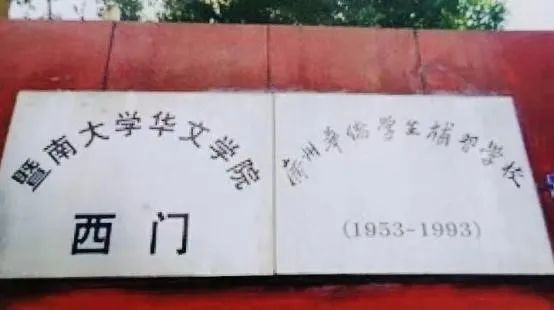 暨南大学华文学院
西门
广州华侨学生补习学校
(1953-1993)